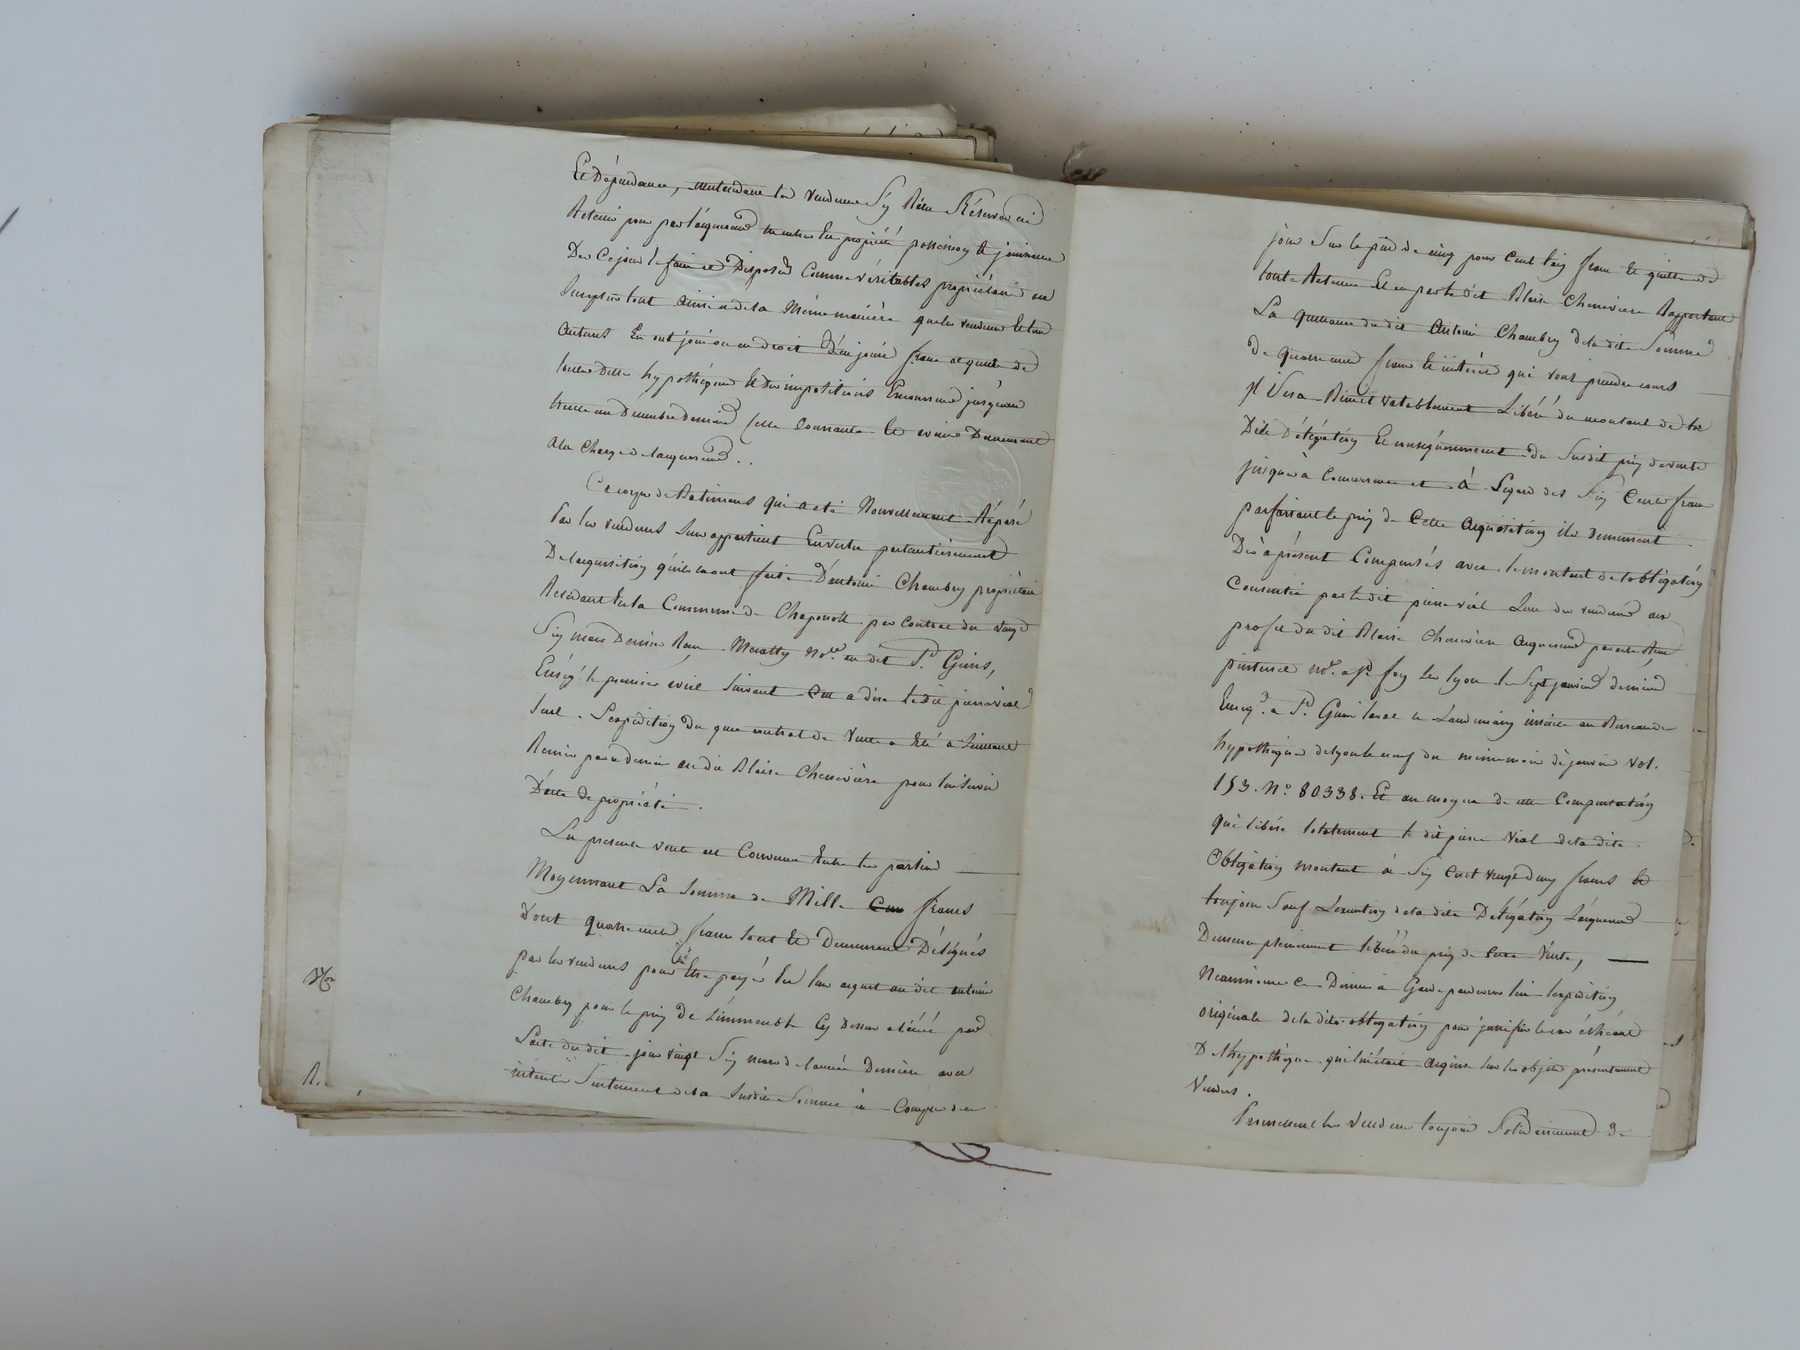 Et Dépendances, sentendent les vendeurs s'y Rien Réserver ni
Retenir pour par l'acquéreur entrer En propriété possession & jouissance
Des Ce jour Et faire et Disposer Comme véritables propriétaire au
Surplus tout ainsi et de la Même manière que les vendeurs Et leurs
auteurs En ont joui ou eu droit D'en jouir franc et quitte de
toutes dettes hypothèques Et des impositions Encourues jusqu'au
trente un Décembre dernier celle Courrante Et avenir Demeurant
a la Charge de lacquereur..
Ce corps de Batimens qui a été Nouvellement Réparé
Par les vendeurs leur appartient En vertu
De lacquisition qu'ils en ont faite D'antoine Chambry propriétaire
Residant En la Commune de Chaponost par Contrat du vingt
Six mars Dernier Reçu Me no.re au dit S.t Genis,
Enreg.é le premier avril Suivant C'est a dire le dit pierre vial
Seul. L'expedition du quel contrat de Vente a Eté a l'instant
Remise par ce dernier au dit Blaise Chenevière pour lui Servir
D'acte de propriété.
La presente vente est Convenue Entre les parties
Moyennant La Somme de Mille Cen francs
Dont quatre cents francs sont Et Demeurent Délégués
par les vendeurs pour Etre payés En leur acquit au dit antoine
Chambry pour le prix De L'immeuble Cy Dessus aliéné par
L'acte du dit jour vingt Six mars de l'année Dernière avec
intérêts de la Susdite Somme à Compter de ce
R.
jour Sur le pied de cinq pour Cent L'an franc Et quitte de
toute Retenue Et en par le dit Blaise Chenevière Rapportant
La quittance du dit Antoine Chambry de la dite Somme
de quatre cents francs Et intérêts qui vont prendre cours
il Sera Bien et valablement Libéré du montant de la
Dite Délégation Et conséquemment du Susdit prix de vente
jusques à Concurrence et à L'égard des Six Cents francs
parfaisant le prix de Cette acquisition ils demeurent
Dès à présent Compensés avec le montant de l'obligation
Consentie par le dit pierre vial L'un des vendeurs au
profit du dit Blaise Chenevière acquereur par acte Reçu
no.re a S.te foy les lyon le Sept janvier dernier
Enreg.é a S.t Genis laval le Landemain inscrite au Bureau des
hypothèques de lyon le neuf du même mois de janvier Vol.
153. N.o 80338. Et au moyen de cette Compensation
qui libère totalement le dit pierre Vial de la dite
Obligation montant à Six Cent vingt cinq francs Et
toujour Sauf L'exécution de la dite Délégation L'acquereur
Demeure pleinement libéré du prix de Cette Vente,
Neanmoins Ce Dernier a Gardé pardevers lui l'expédition
originale de la dite obligation pour justifier le cas échéant
De l'hypothèque qui lui était acquise Sur les objets présentement
Vendus.
Promettent les Vendeurs toujour Solidairement de